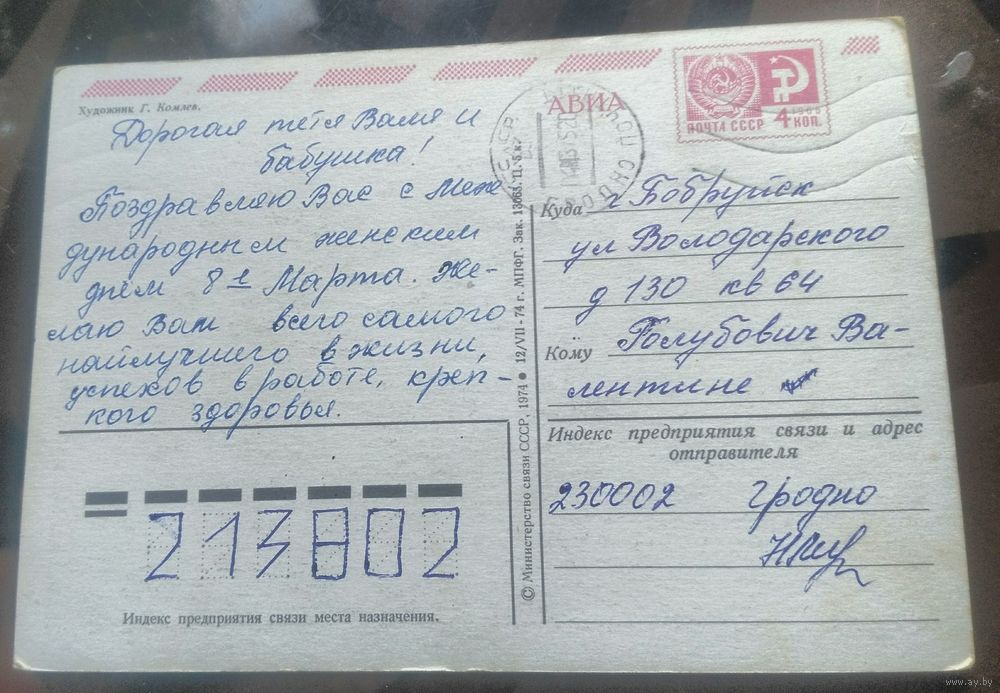 Художник Г. Комлев.
Дорогая тётя Валя и
бабушка!
Поздравляю Вас с Меж-
дународным женским
днём 8 е Марта. Же-
лаю Вам всего самого
найлучшего в жизни,
успехов в работе, креп-
кого здоровья.
213802
Индекс предприятия связи места назначения.
© Министерство связи СССР, 1974 ● 12/VII - 74 г. МПФГ. Зак.
АВИА
1966
ПОЧТА СССР 4 КОП.
Куда г Бобруйск
ул Володарского
д 130 кв 64
Кому Голубович Ва-
лентине
Индекс предприятия связи и адрес
отправителя
230002 Гродно
www.ay.by